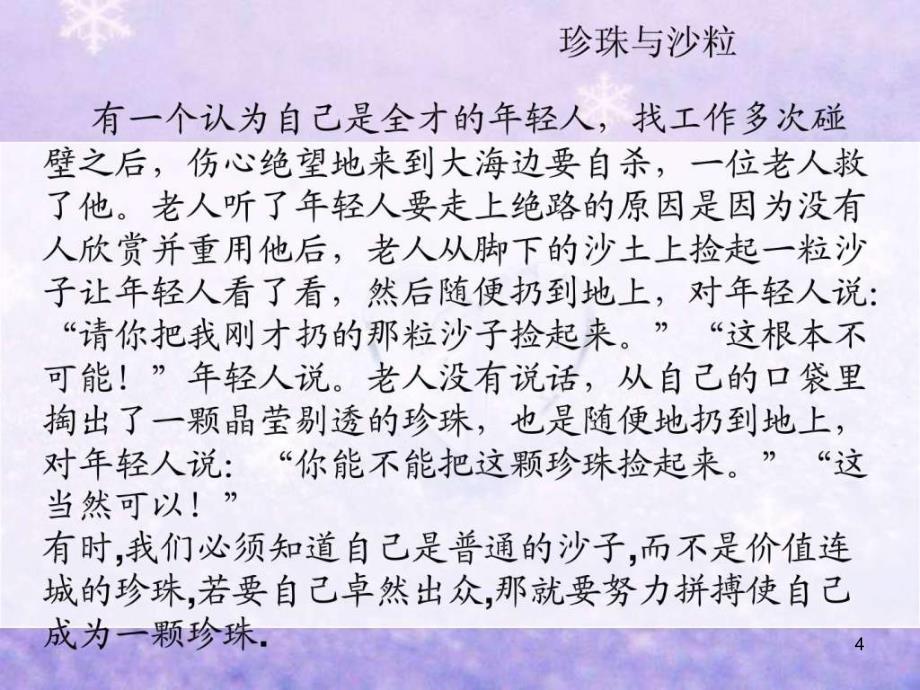 珍珠与沙粒
有一个认为自己是全才的年轻人，找工作多次碰
壁之后，伤心绝望地来到大海边要自杀，一位老人救
了他。老人听了年轻人要走上绝路的原因是因为没有
人欣赏并重用他后，老人从脚下的沙土上捡起一粒沙
子让年轻人看了看，然后随便扔到地上，对年轻人说：
“请你把我刚才扔的那粒沙子捡起来。”“这根本不
可能！”年轻人说。老人没有说话，从自己的口袋里
掏出了一颗晶莹剔透的珍珠，也是随便地扔到地上，
对年轻人说：“你能不能把这颗珍珠捡起来。”“这
当然可以！”
有时,我们必须知道自己是普通的沙子,而不是价值连
城的珍珠,若要自己卓然出众,那就要努力拼搏使自己
成为一颗珍珠.
4